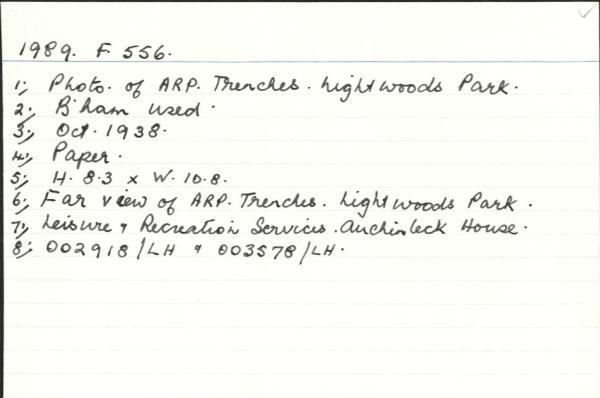 1989. F 556.
1; Photo. of ARP. Trenches. Lightwoods Park.
2; B'ham used.
3; Oct. 1938.
4; Paper.
5; H. 8.3 x W. 10.8.
6; Far view of ARP. Trenches. Lightwoods Park.
7; Leisure & Recreation Services. Auchinleck House.
8; 002918/LH & 003578/LH.